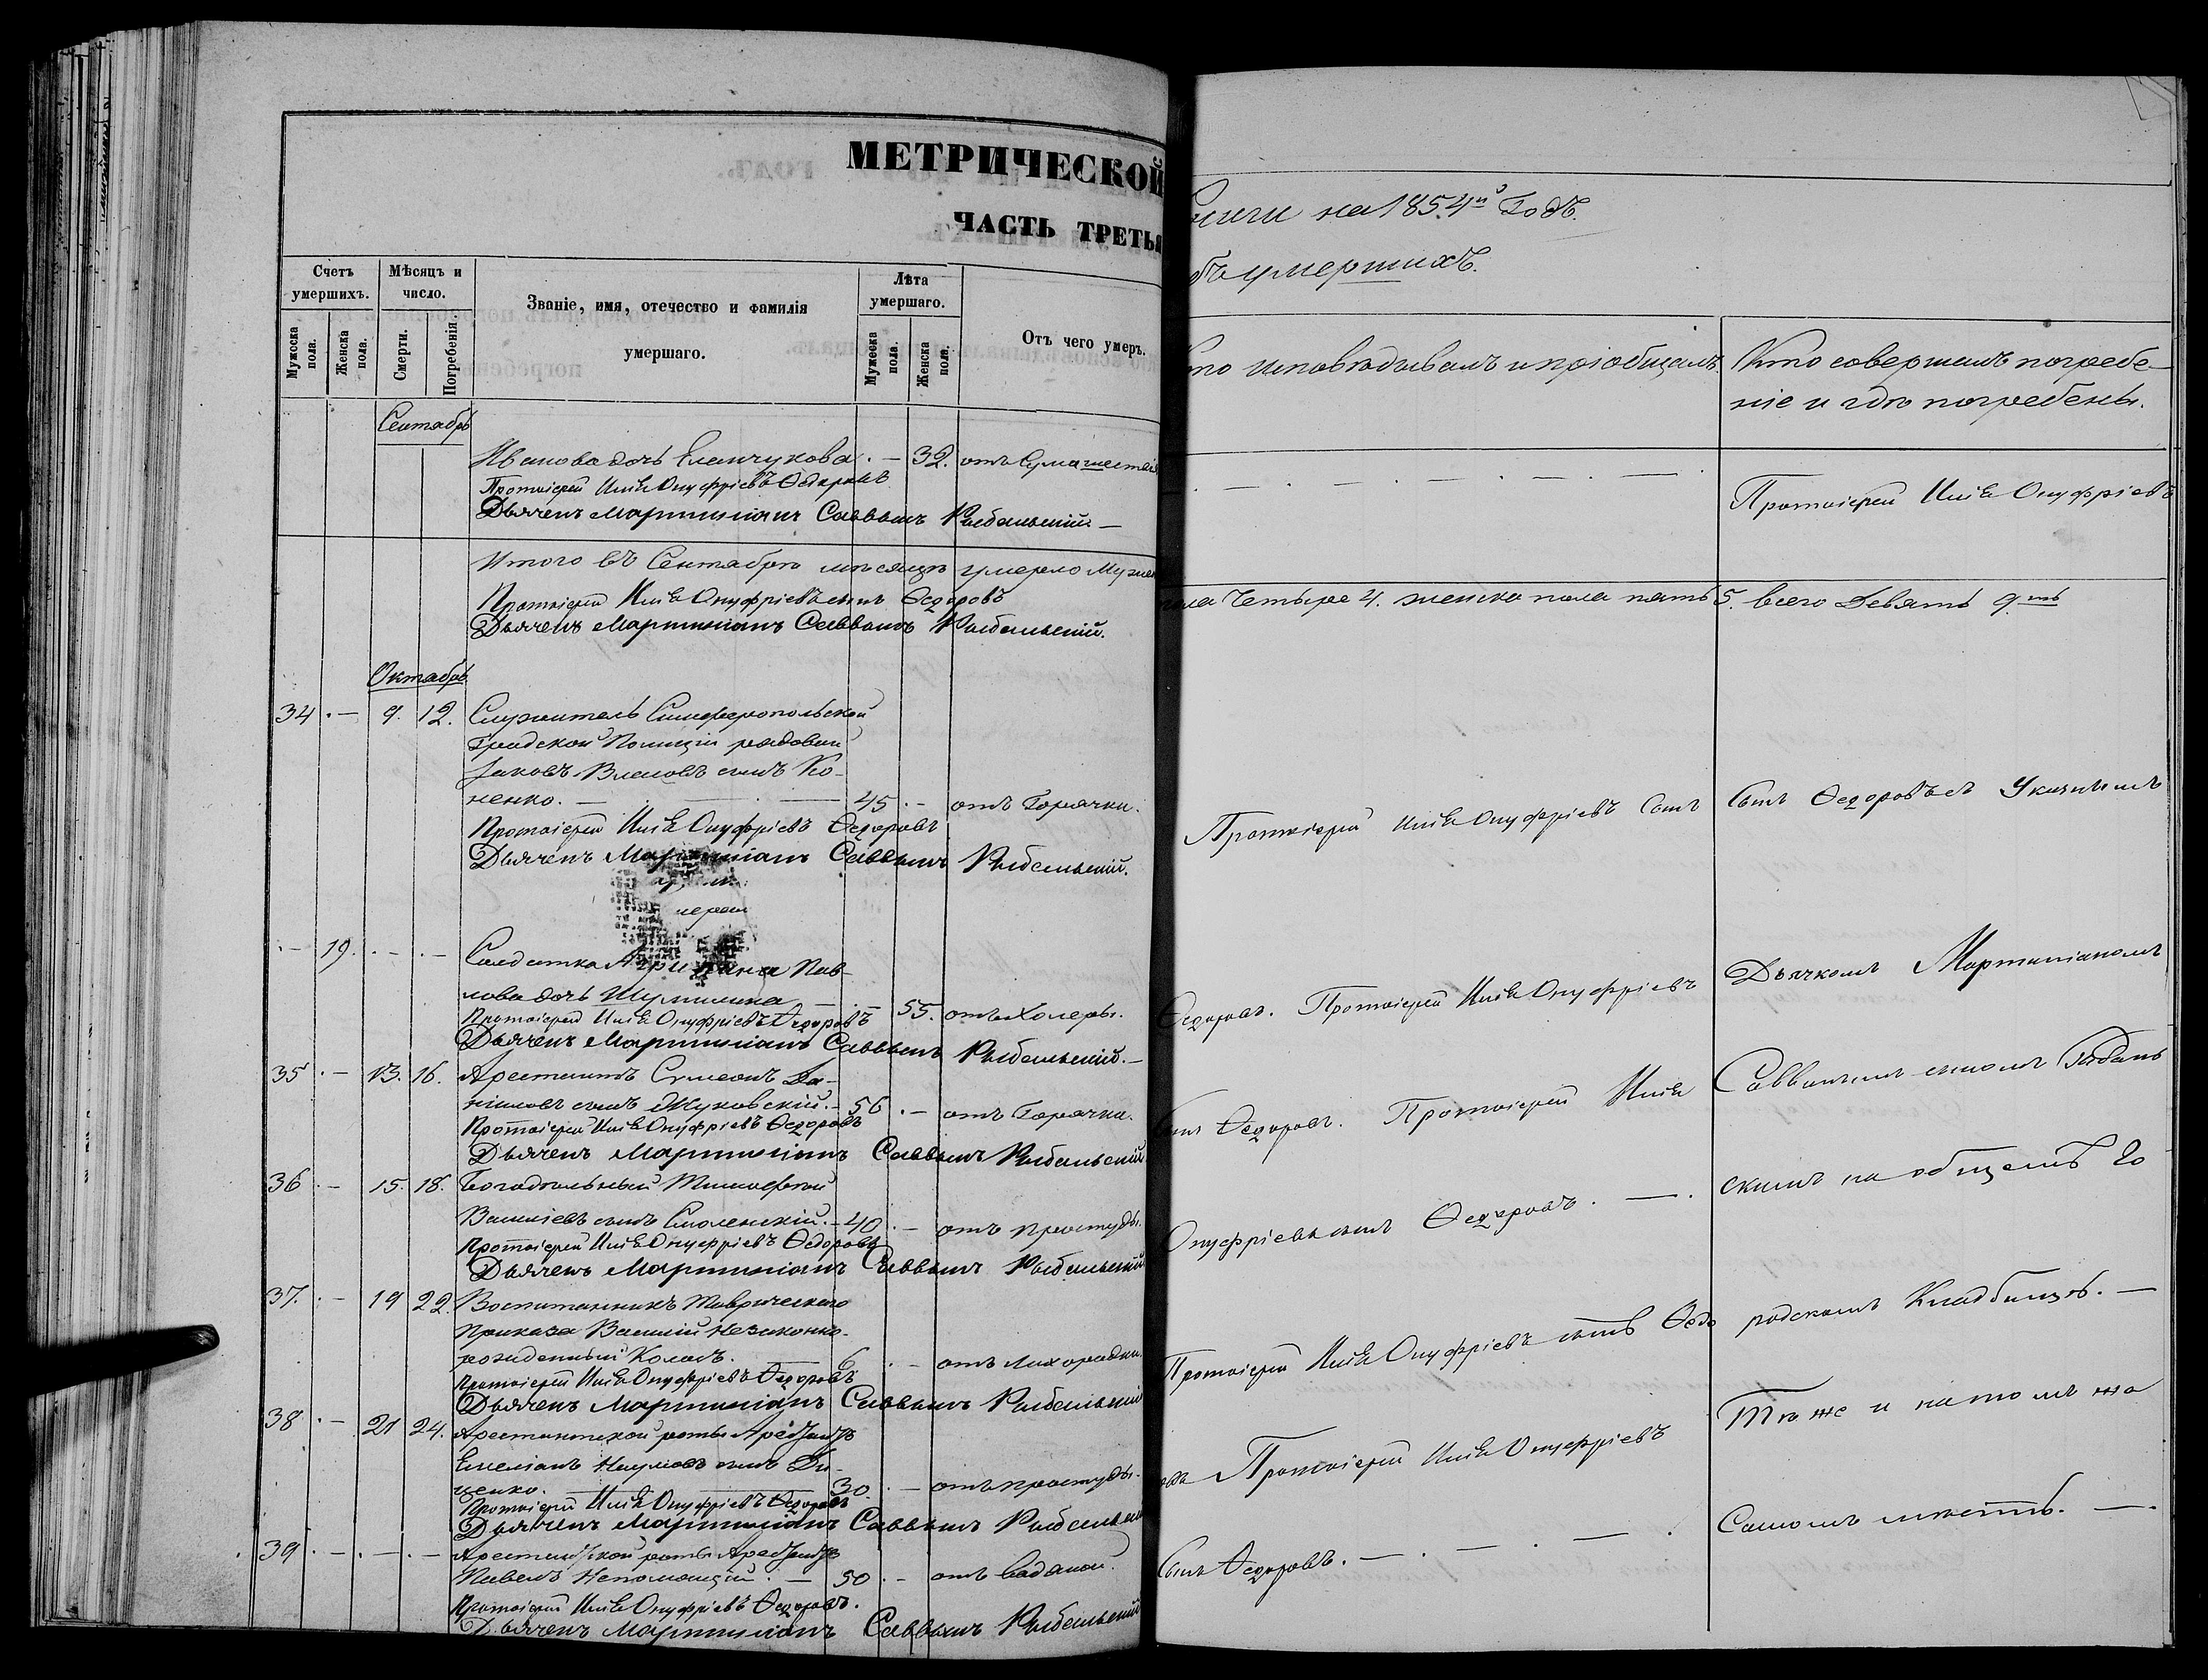 МЕТРИЧЕСКОЙ
ЧАСТЬ ТРЕТЬЯ
Счетъ умершихъ.
Мужеска пола.
Женска пола.
Мѣсяцъ и число.
Смерти.
Погребенія.
Званіе, имя, отечество и фамилія
умершаго.
Лѣта умершаго.
Мужеска пола.
Женска пола.
Отъ чего умеръ.
Сентябрь
Иванова дочь Еланчукова . — 32. отъ Сумашествія
Протоіерей Илія Онуфріевъ Ѳедоровъ
Дьячекъ Мартиніанъ Саввинъ Рыбальскій. —
Итого въ Сентябрѣ мѣсяцѣ умерло Мужес
Протоіерей Илія Онуфріевъ сынъ Ѳедоровъ
Дьячекъ Мартиніанъ Саввинъ Рыбальскій.
Октябрь
34 . — 9. 12. Служитель Симферопольской
Градской Полиціи рядовой
Іаковъ Власовъ сынъ Ко-
ненко. — 45 . — отъ Горячки.
Протоіерей Илія Онуфріевъ Ѳедоровъ
Дьячекъ Мартиніанъ Саввинъ Рыбальскій.
. — 19. . — . — Солдатка Агрипина Пав-
лова дочь — . — 55. отъ Холеры.
Протоіерей Илія Онуфріевъ Ѳедоровъ
Дьячекъ Мартиніанъ Саввинъ Рыбальскій. —
35 . — 13. 16. Арестантъ Симеонъ Да-
ніиловъ сынъ Жуковскій. — 56 . — отъ Горячки.
Протоіерей Илія Онуфріевъ Ѳедоровъ
Дьячекъ Мартиніанъ Саввинъ Рыбальскій
36 . — 15. 18. Богадѣльный Тимофей
Василіевъ сынъ Смоленскій. — 40 . — отъ простуды.
Протоіерей Илія Онуфріевъ Ѳедоровъ
Дьячекъ Мартиніанъ Саввинъ Рыбальскій
37. . — 19 22. Воспитанникъ Таврическаго
Приказа Василій незаконно-
рожденный — 6 . — отъ лихорадки.
Протоіерей Илія Онуфріевъ Ѳедоровъ
Дьячекъ Мартиніанъ Саввинъ Рыбальскій
38 . — 21 24. Арестантской роты Арестантъ
Емеліанъ Наумовъ сынъ Ди-
ценко. — 30 . — отъ простуды.
Протоіерей Илія Онуфріевъ Ѳедоровъ
Дьячекъ Мартиніанъ Саввинъ Рыбальскій
39 . — . — . — Арестантской роты Арестантъ
Павелъ Непомнящій . — 50 . — отъ Водяной.
Протоіерей Илія Онуфріевъ Ѳедоровъ.
Дьячекъ Мартиніанъ Саввинъ Рыбальскій
ниги на 1854й Годъ.
бъ умершихъ.
то исповѣдывалъ и пріобщалъ.
Кто совершалъ погребе-
ніе и гдѣ погребены.
Протоіерей Илія Онуфріевъ
пола Четыре 4. женска пола пять 5. всего Девять 9.ть
Протоіерей Илія Онуфріевъ Сынъ
Ѳедоровъ. Протоіерей Илія Онуфріевъ
Сынъ Ѳедоровъ. Протоіерей Илія
Онуфріевъ сынъ Ѳедоровъ. — .
Протоіерей Илія Онуфріевъ сынъ Ѳедо
ровъ Протоіерей Илія Онуфріевъ
Сынъ Ѳедоровъ. — . — . — .
Сынъ Ѳедоровъ съ Указнымъ
Дьячкомъ Мартиніаномъ
Саввинымъ сыномъ Рыбаль
скимъ на общемъ Го
родскомъ Кладбищѣ. —
Тѣ же и на томъ же
Самомъ мѣстѣ. — .